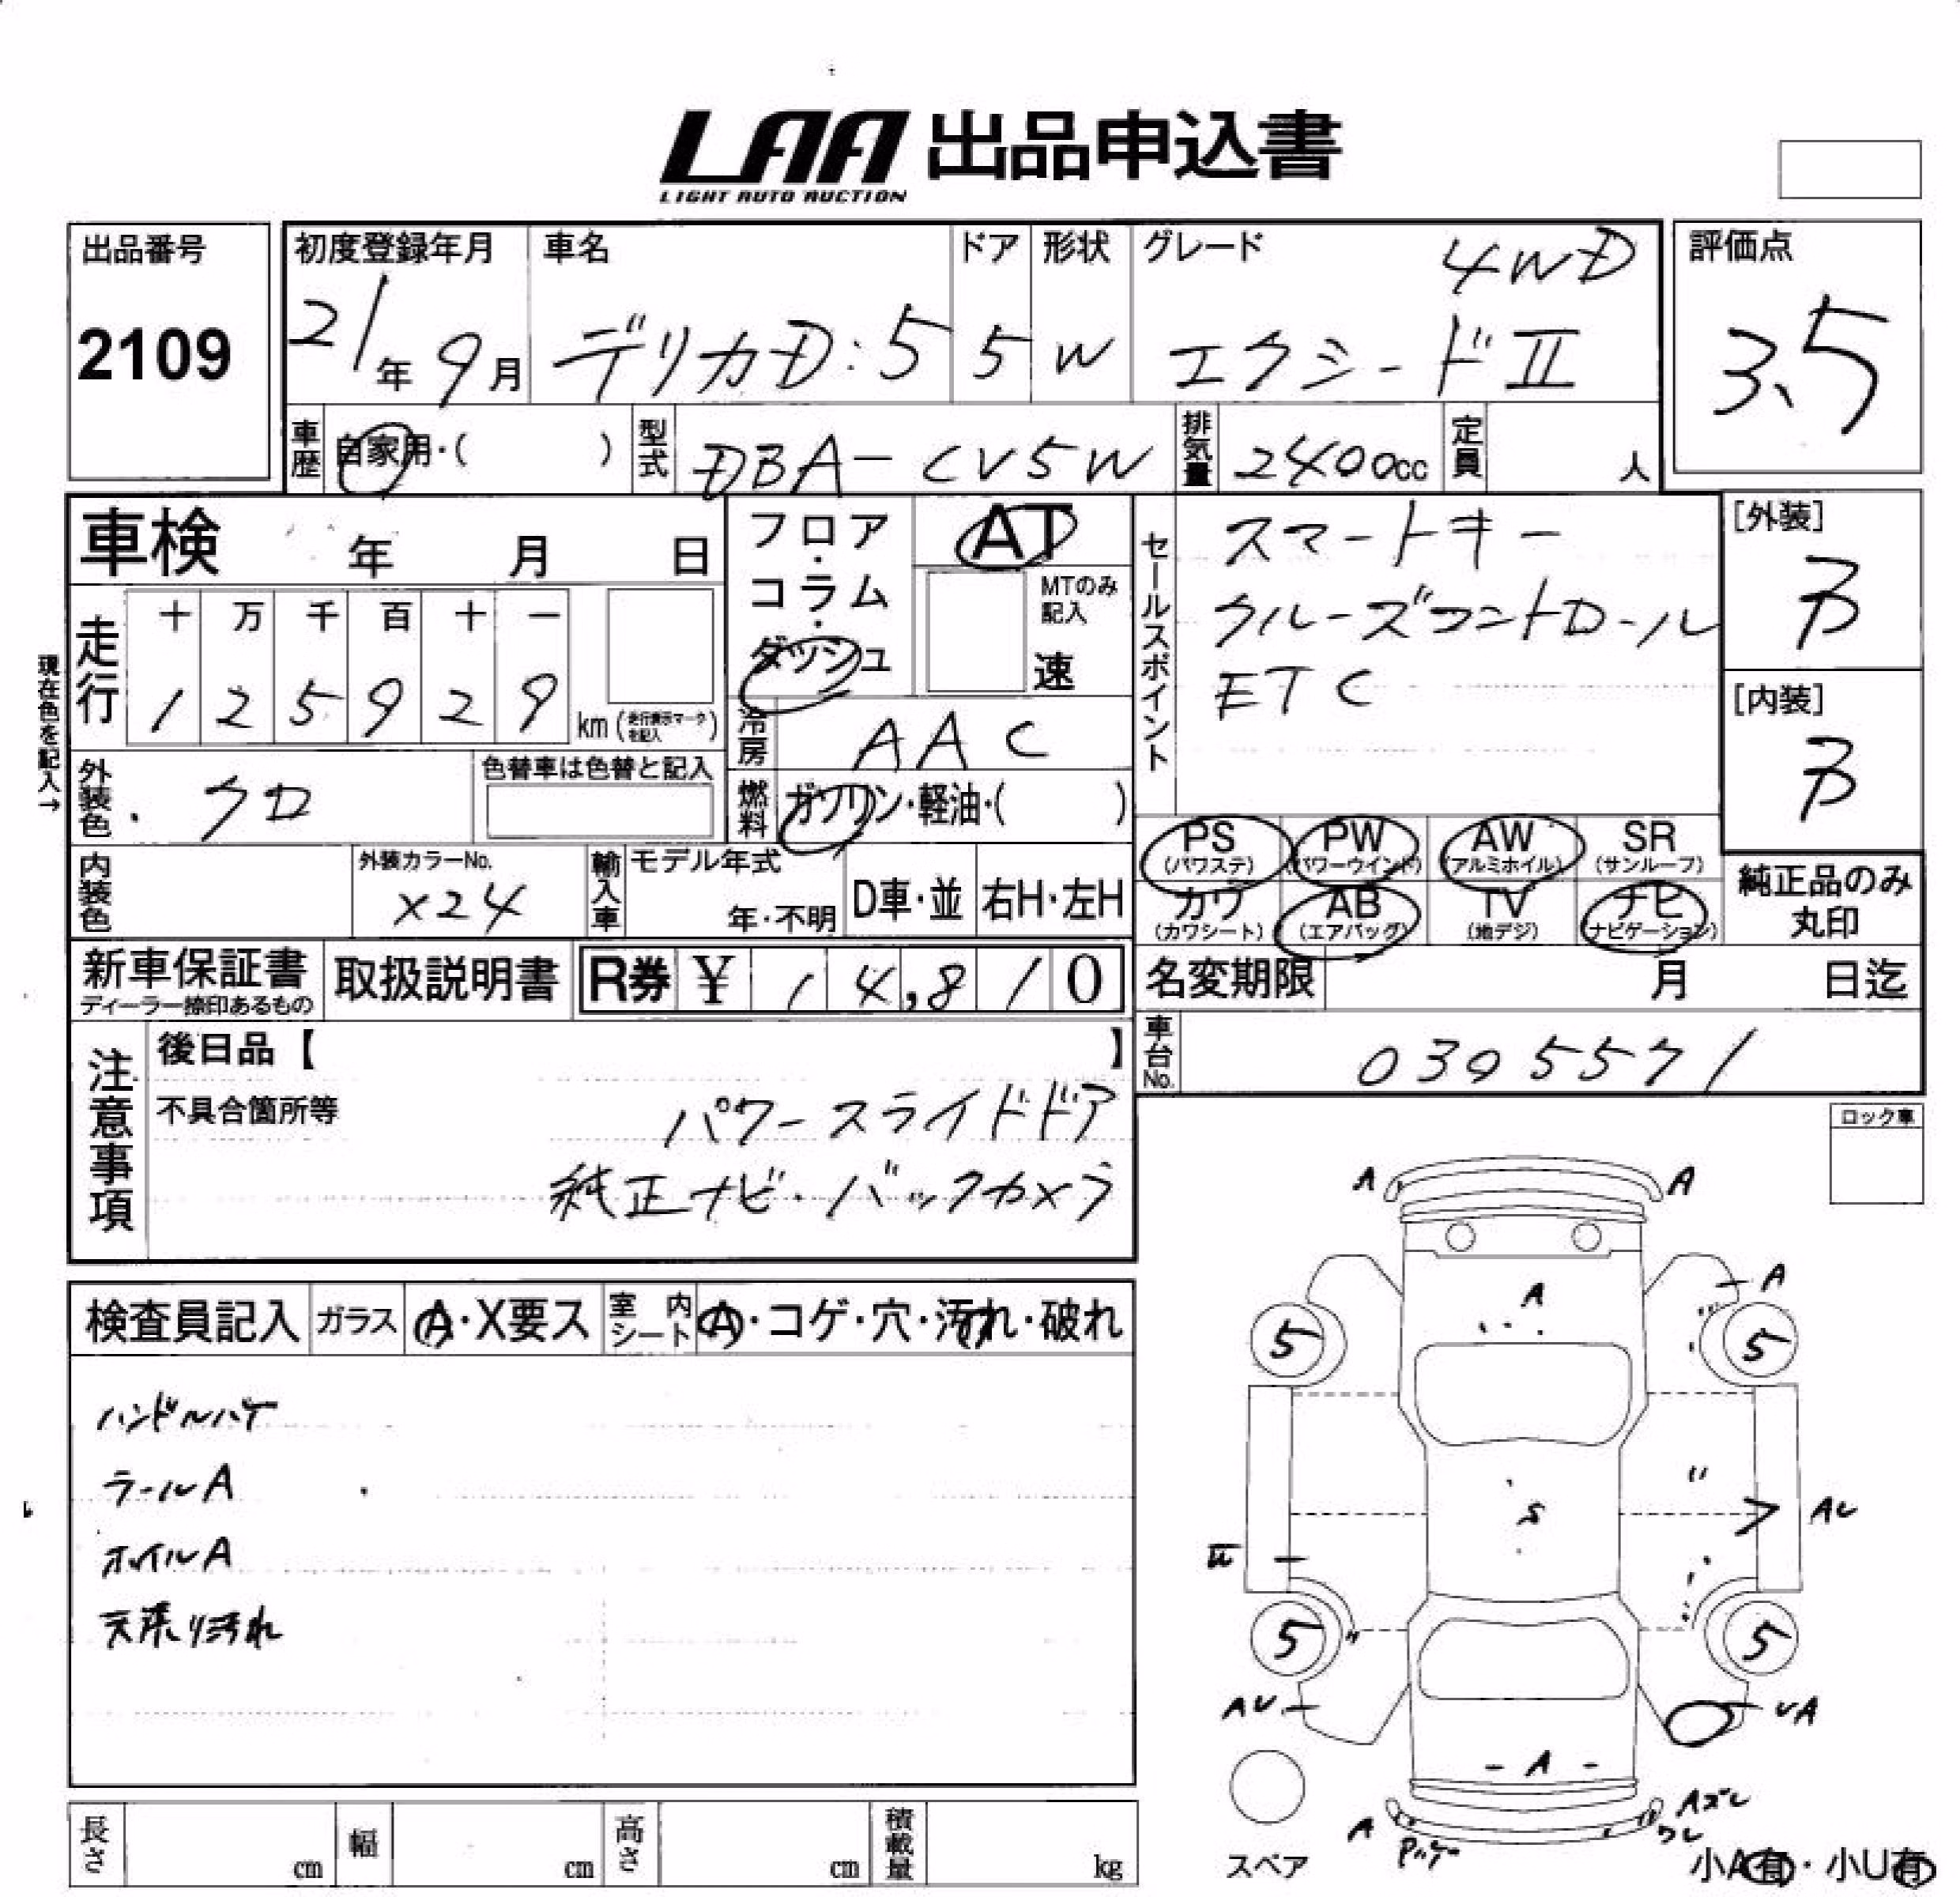 LAA 出品申込書
LIGHT AUTO AUCTION
出品番号
2109
初度登録年月
21年9月
車名
デリカD:5
ドア
5
形状
W
グレード
4WD
エクシードⅡ
評価点
3.5
車歴
自家用・( )
型式
DBA-CV5W
排気量
2400cc
定員
人
車検 年 月 日
フロア・コラム・ダッシュ
AT
MTのみ記入
速
セールスポイント
スマートキー
クルーズコントロール
ETC
[外装]
B
[内装]
B
現在色を記入→
走行
十 万 千 百 十 一
1 2 5 9 2 9 km (走行表示マークを記入)
冷房
AAC
外装色
クロ
色替車は色替と記入
燃料
ガソリン・軽油・( )
PS (パワステ)
PW (パワーウインド)
AW (アルミホイル)
SR (サンルーフ)
カワ (カワシート)
AB (エアバッグ)
TV (地デジ)
ナビ (ナビゲーション)
純正品のみ丸印
内装色
外装カラーNo.
X24
輸入車
モデル年式
年・不明
D車・並
右H・左H
新車保証書
ディーラー捺印あるもの
取扱説明書
R券 ¥ 14,810
名変期限 月 日迄
車台No.
0395571
注意事項
後日品【 】
不具合箇所等
パワースライドドア
純正ナビ・バックカメラ
ロック車
検査員記入
ガラス
A・X要ス
室内シート
A・コゲ・穴・汚れ・破れ
ハンドルハゲ
ラールA
ホイルA
天張り汚れ
A A
A
A
5 5
S
AU
5 5
AU
UA
A
A
Aズレ
ワレ
Pハゲ
スペア
小A有・小U有
長さ cm
幅 cm
高さ cm
積載量 kg